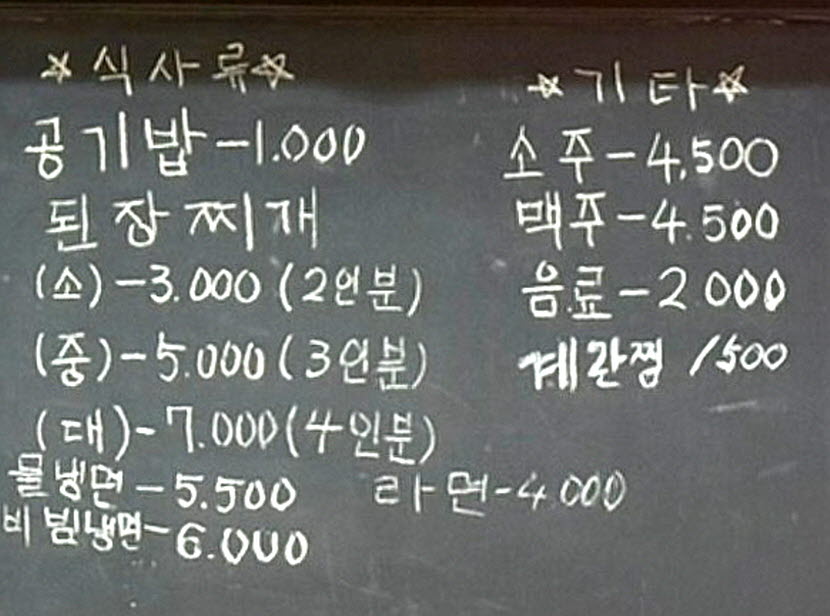 ☆식사류☆
공기밥-1.000
된장찌개
(소)-3.000(2인분)
(중)-5.000(3인분)
(대)-7.000(4인분)
물냉면-5.500
비빔냉면-6.000
라면-4000
☆기타☆
소주-4,500
맥주-4.500
음료-2000
계란찜 1500